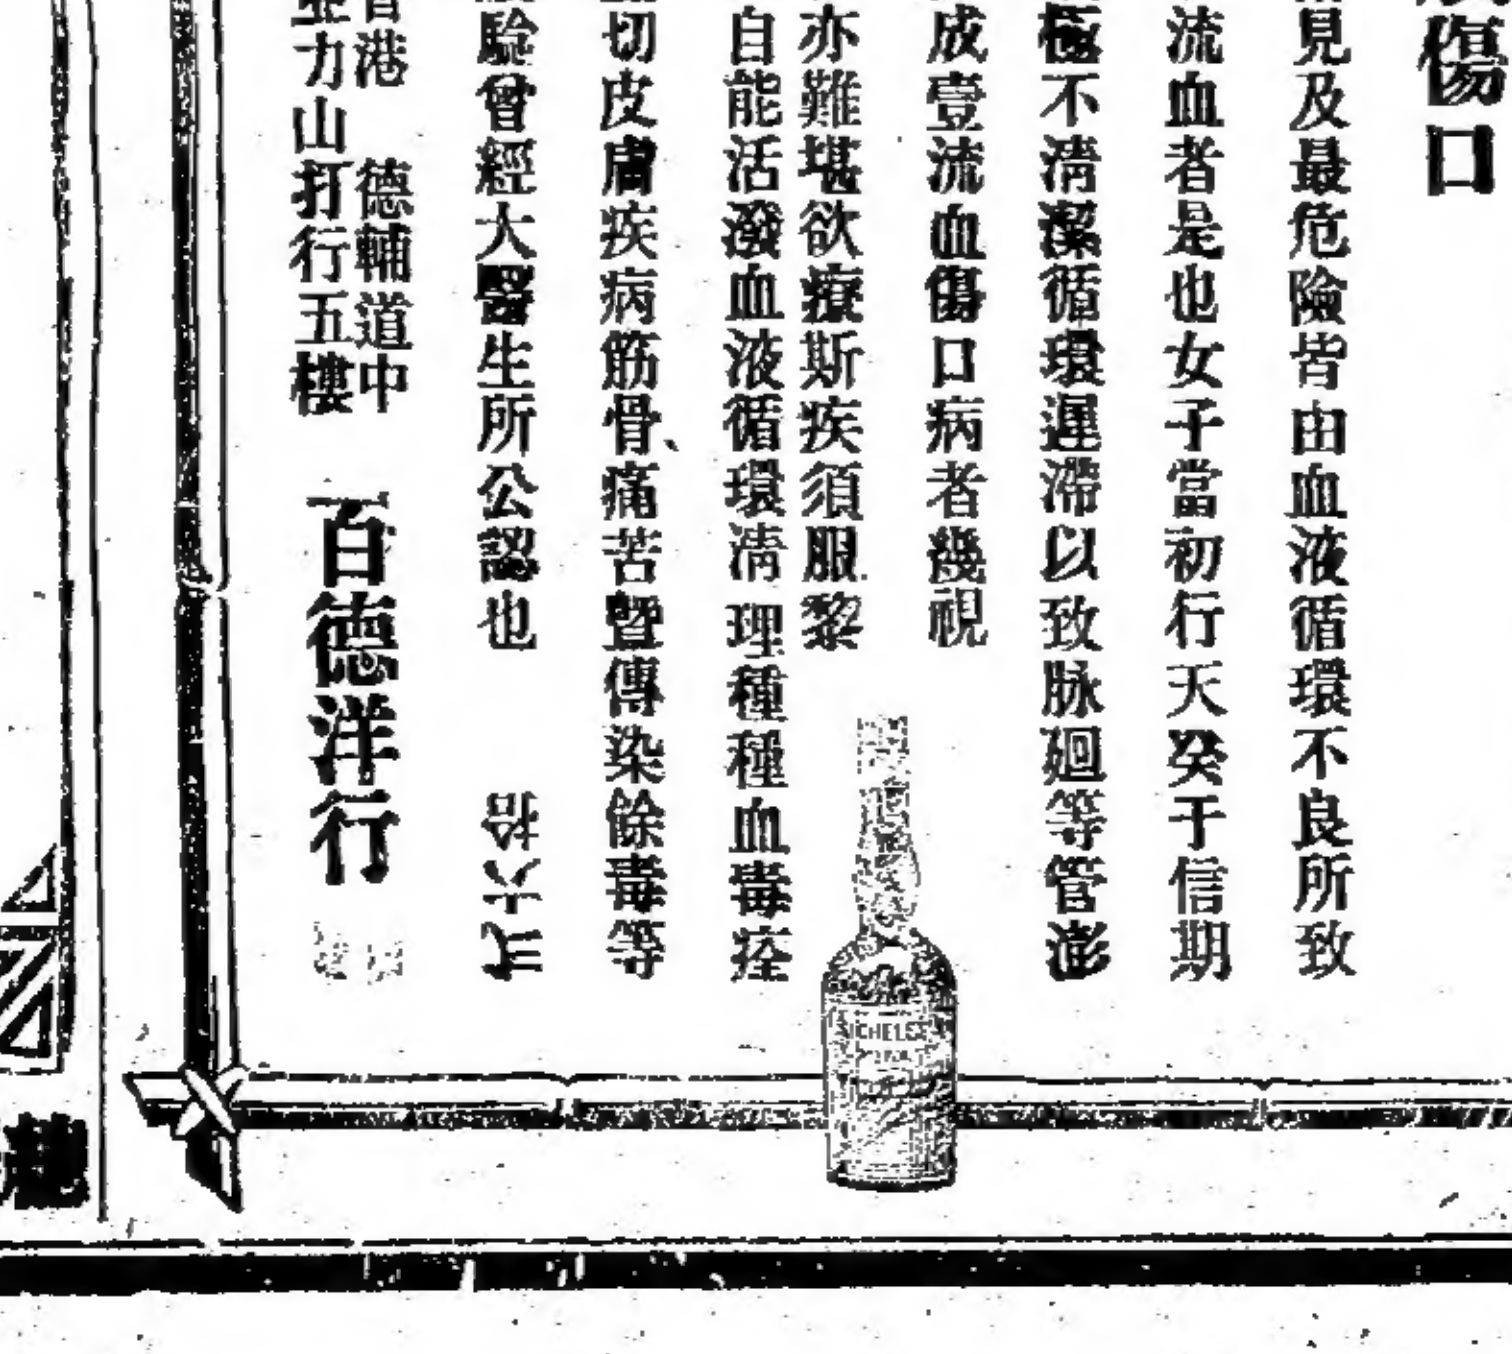 傷口
見及最危險皆由血液循環不良所致
流血者是也女子當初行天癸于信期
極不清潔循環遲滯以致脉廻等管澎
成壹流血傷口病者幾視
亦難堪欲療斯疾須服黎
自能活潑血液循環清理種種血毒痊
切皮膚疾病筋骨、痛苦暨傳染餘毒等
驗曾經大醫生所公認也
弍六拾
香港 德輔道中
亚力山打行五樓
百德洋行